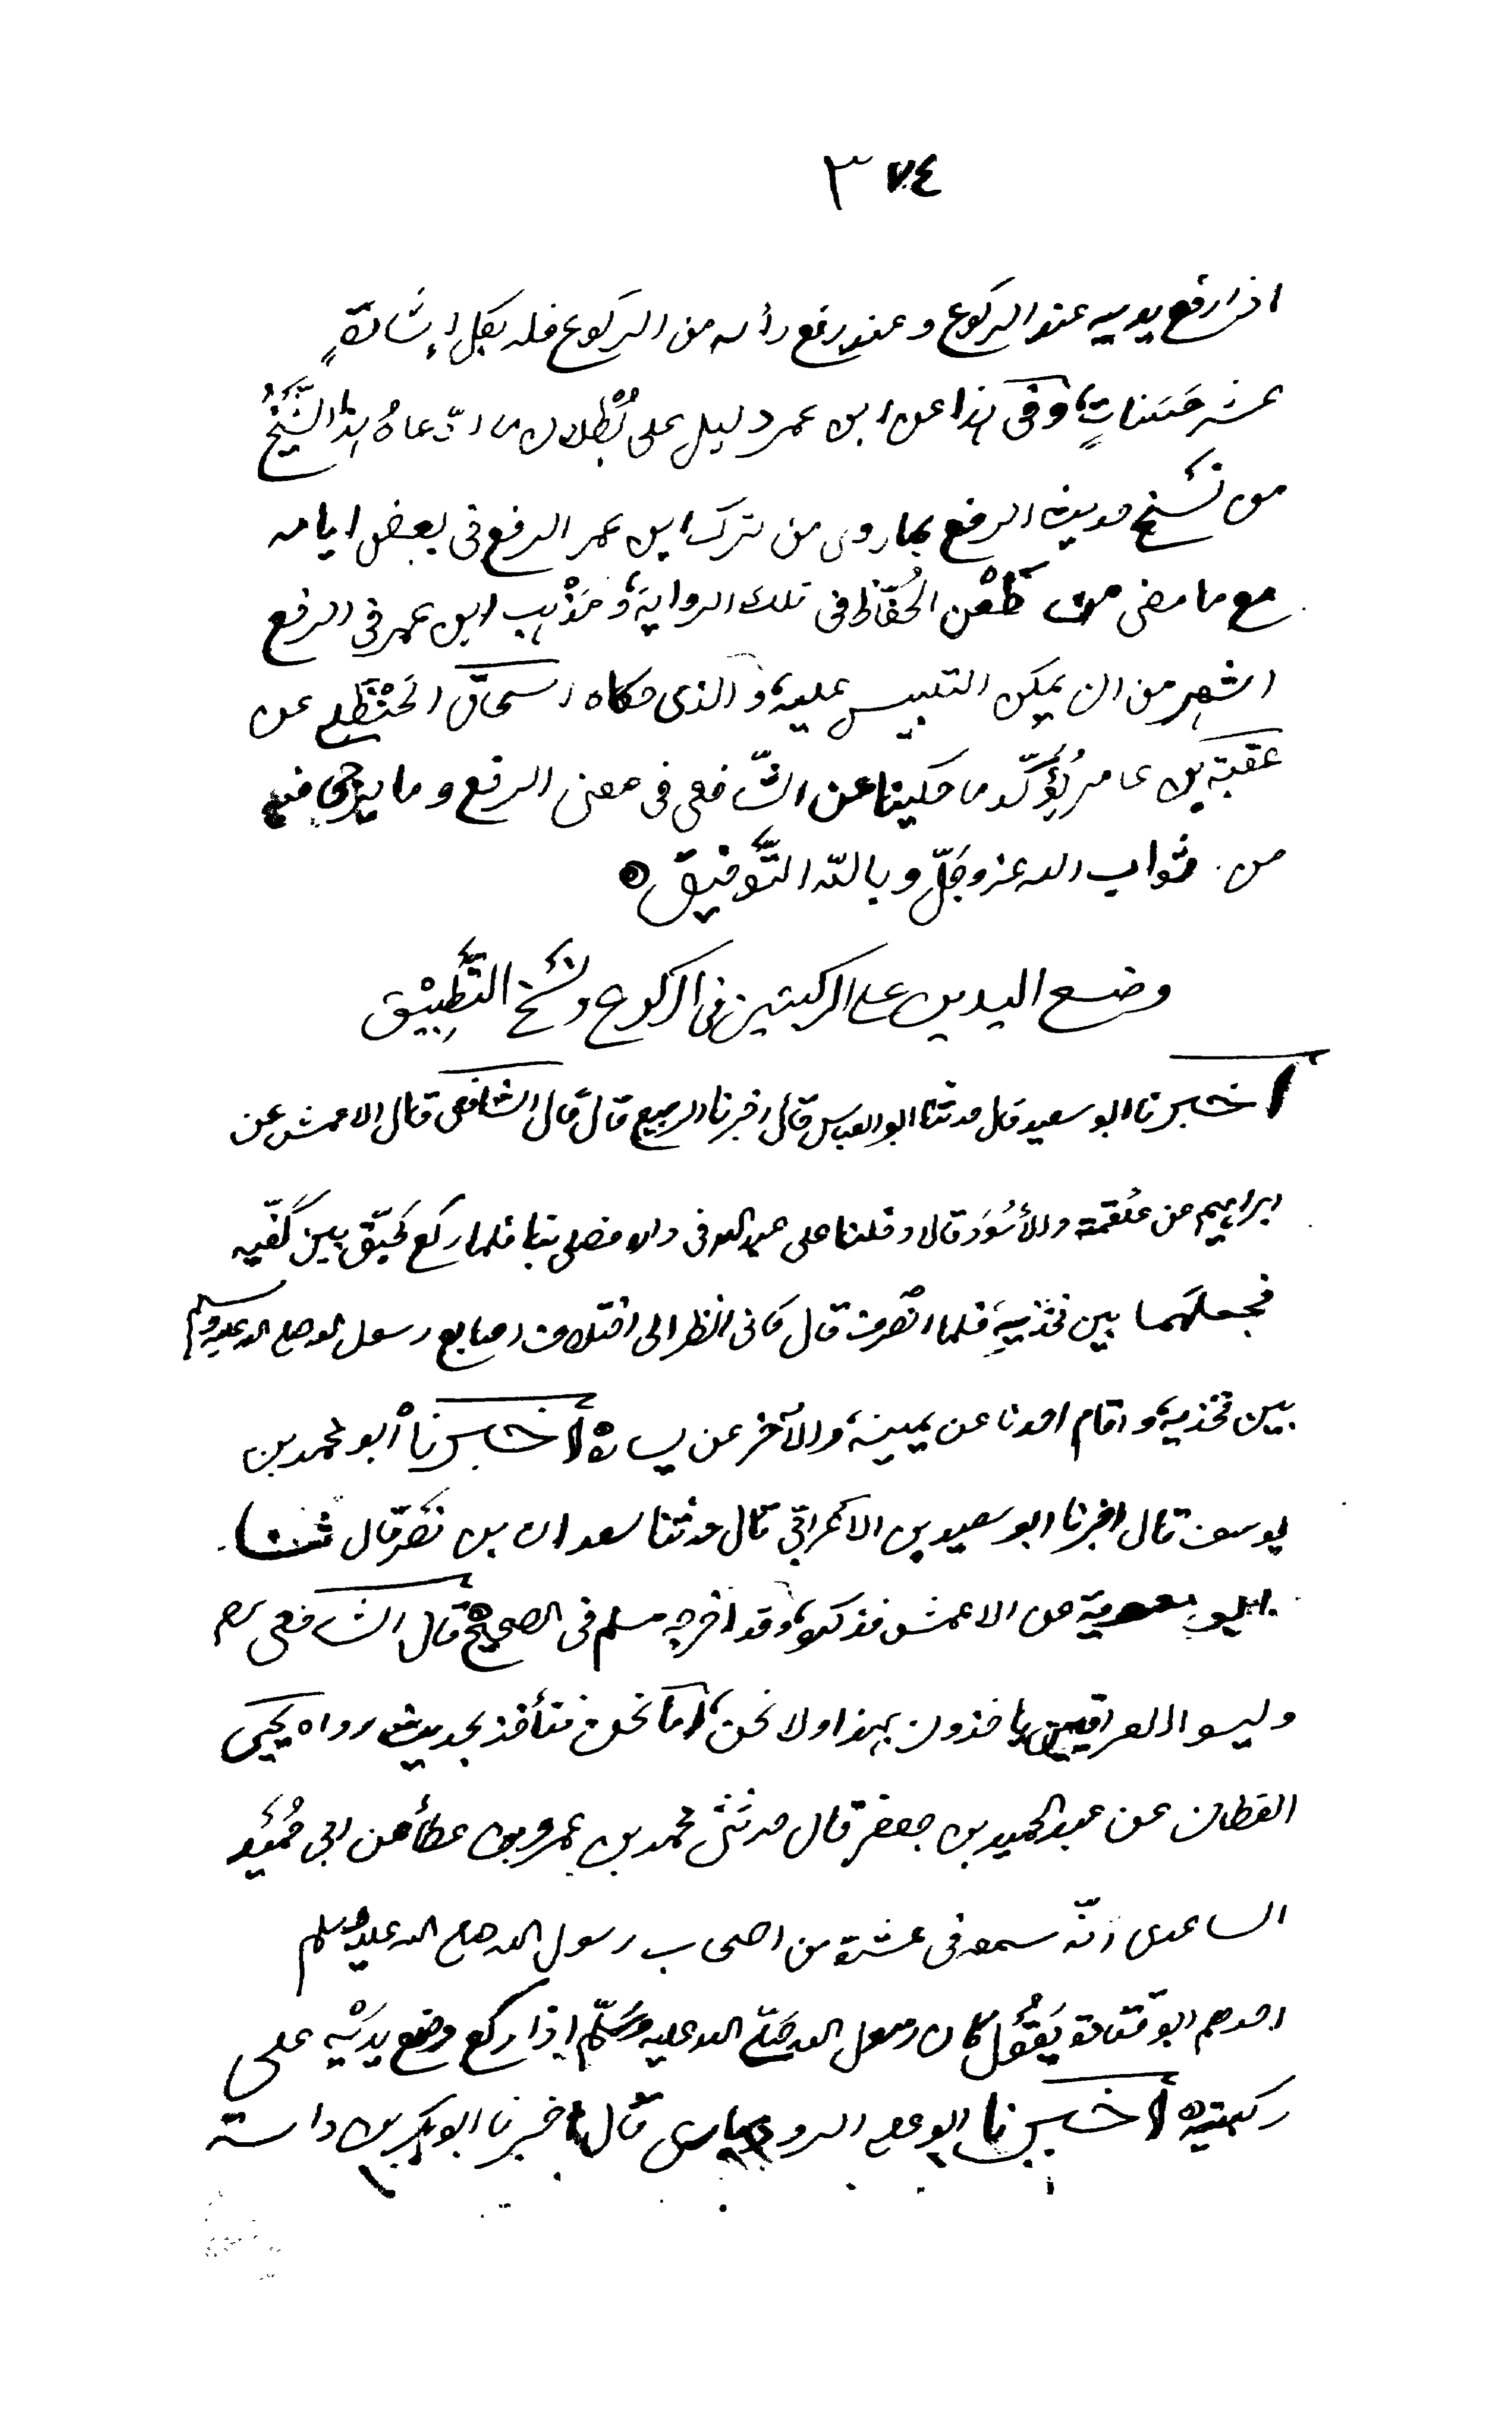 ٣٧٤
اذا رفع يديه عند الركوع وعند رفع رأسه من الركوع فله بكل إشارةٍ
عشر حَسَناتٍ، وفي هذا عن ابن عمر دليل على بُطْلان ما ادّعاهُ هذا الشَّيْخُ
من نَسْخ حديث الرفع بما روى من ترك ابن عمر الرفع في بعض ايامه
مع ما مضى من طَعْن الحُفّاظ في تلك الرواية، ومَذْهب ابن عمر في الرفع
اشهر من ان يمكن التلبيس عليه، والذي حكاه اسحاق الحَنْظَلي عن
عقبة بن عامر يُؤَكّد ما حكينا عن الشّافعي في معنى الرفع وما يرجى فيه
من ثواب الله عز وجَلّ وبالله التَّوفيق ه
وضع اليدين على الركبتين في الركوع ونَسْخ التَّطبِيْق
أخبرنا ابو سعيد قال حدثنا ابو العباس قال اخبرنا الربيع قال قال الشافعي قال الاعمش عن
ابراهيم عن عَلقمة والأسْوَد قالا دخلنا على عبد الله في داره فصلى بنا فلما ركع طبّق بين كَفّيه
فجعلهما بين فخذيهِ، فلما انصرف قال كانى انظر الى اختلاف اصابع رسول الله صلى الله عليه وسلم
بين فخذيه، واقام احدنا عن يمينه، والآخر عن يساره أخبرنا أبو محمد بن
يوسف قال اخبرنا ابو سعيد بن الاَعْرابّي قال حدثنا سعدان بن نَصْر قال ثنا
ابو معوية عن الاعمش فذكره، وقد اخرجه مسلم في الصحيح ه قال الشافعي رحمه
وليسو العراقيين يا خذون بهذا ولا نحن، اما نحن فنأخذ بحديث رواه يحيى
القطان عن عبد الحميد بن جعفر قال حدثَنى محمد بن عمرو بن عطأ عن ابى حُمَيْد
الساعدى انّه سمعه في عشرة من اصحاب رسول الله صلى الله عليه وسلم
احدهم ابو قتادة يَقُوْل كان رسول الله صَلّى الله عليه وسَلّم اذا ركع وضع يدَيْه على
ركبتيه ه أخبرنا ابو على الروذبارى قال اخبرنا ابو بكر بن داسة